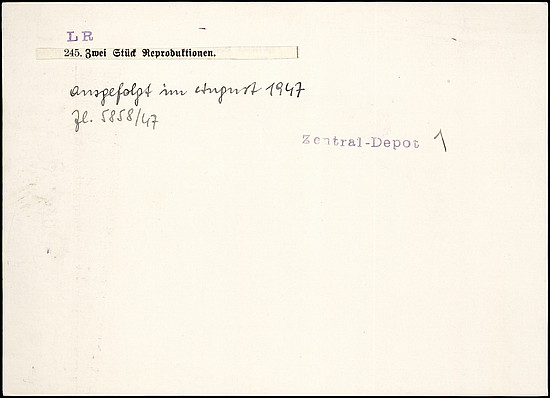 LR
245. Zwei Stück Reproduktionen.
ausgefolgt im August 1947
Zl. 5858/47
Zentral-Depot